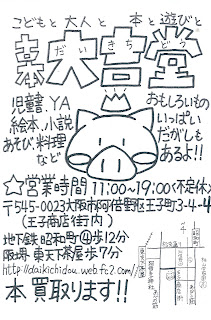 こどもと大人と 本と遊びと
大吉堂
だいきちどう
児童書、YA
絵本、小説
あそび、料理
など
おもしろいもの
いっぱい
だがしも
あるよ!!
☆営業時間 11:00~19:00(不定休)
〒545-0023 大阪市阿倍野区王子町3-4-4
(王子商店街内)
地下鉄 昭和町④歩12分
阪堺 東天下茶屋歩7分
http://daikichidou.web.fc2.com//
本買取ります!!